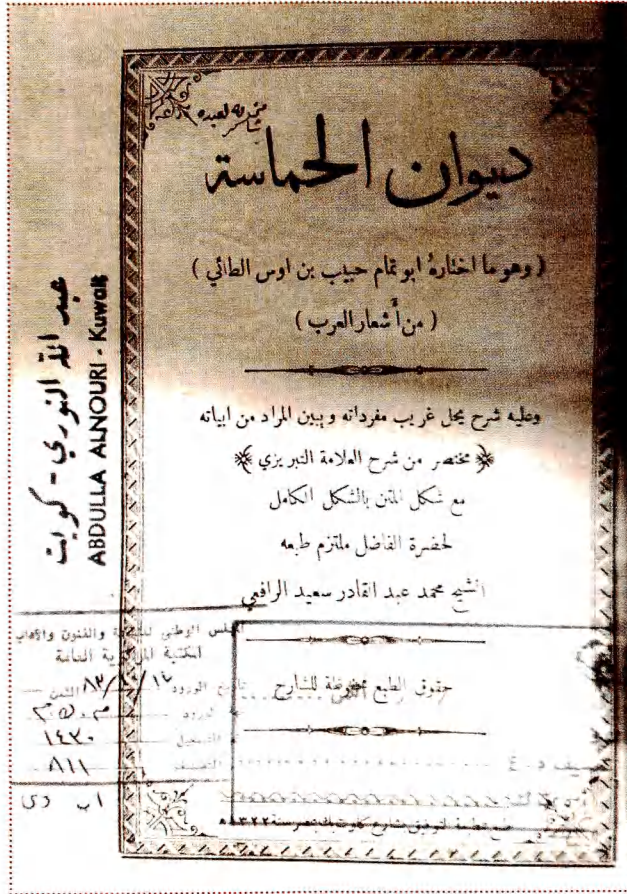 ديوان الحماسة
( وهو ما اختارهُ ابو تمام حبيب بن اوس الطائي )
( من أشعار العرب )
وعليه شرح يحل غريب مفرداته ويبين المراد من ابياته
مختصر من شرح العلامة التبريزي
مع شكل المتن بالشكل الكامل
لحضرة الفاضل ملتزم طبعه
الشيخ محمد عبد القادر سعيد الرافعي
حقوق الطبع محفوظة للشارح
عبد الله النوري - كويت
ABDULLA ALNOURI - Kuwait
المجلس الوطني للثقافة والفنون والآداب
المكتبة المركزية العامة
تاريخ الورود
١٤٣٠
٨١١